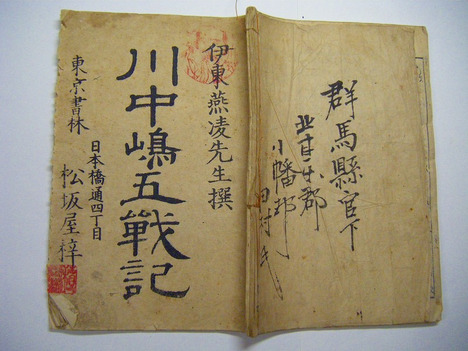 群馬縣官下
郡
小幡
田村
伊東燕凌先生撰
川中嶋五戰記
東京書林
日本橋通四丁目
松坂屋梓